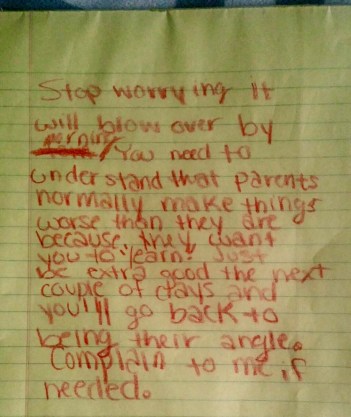 Stop worrying It
will blow over by
morning/You need to
understand that parents
normally make things
worse than they are
because, they want
you to "learn". Just
be extra good the next
couple of days and
you'll go back to
being their angle.
Complain to me if
needed.